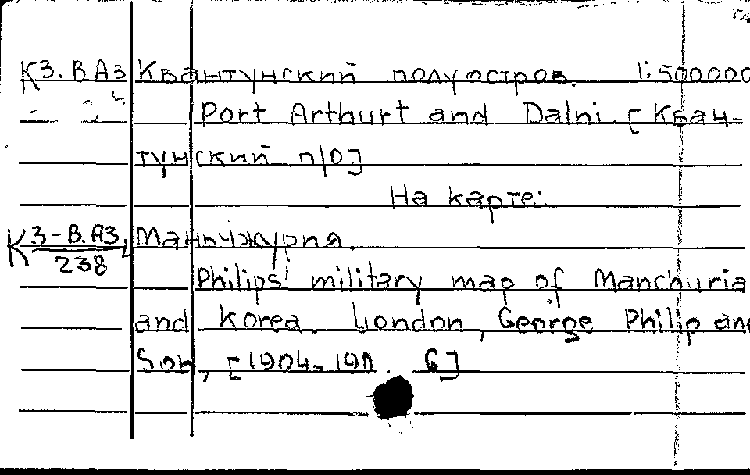 К3. В А3 Квантунский полуостров. 1:500000
Port Arthurt and Dalni. [Кван-
тунский п/о]
На карте:
К 3-В.А3 Маньчжурия.
238
Philips' military map of Manchuria
and Korea. London, George Philip and
Son, [1904-190 6]